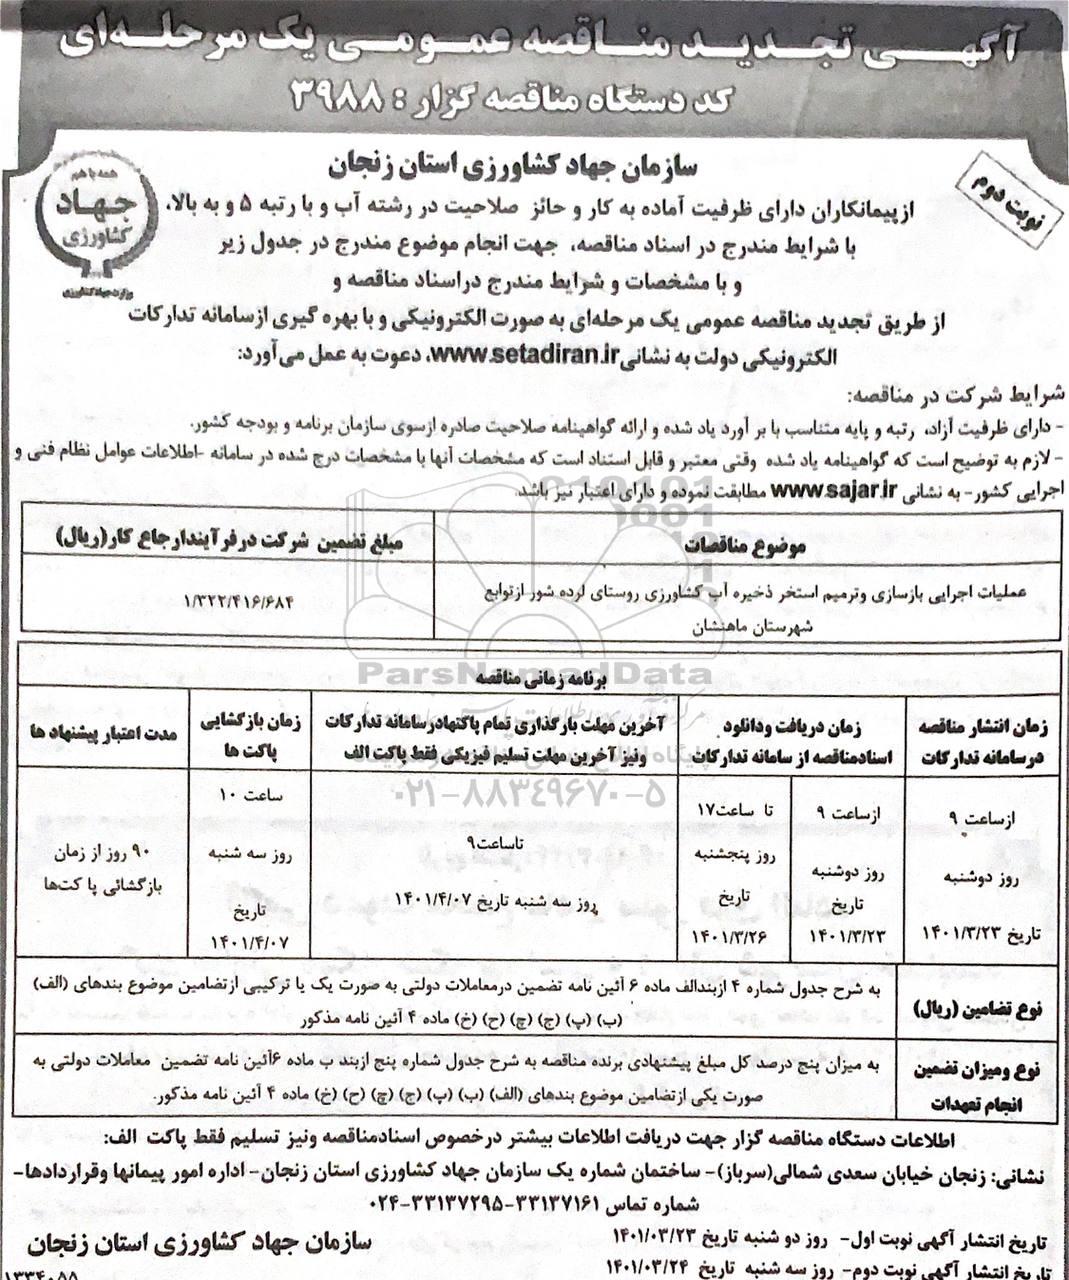 آگهی تجدید مناقصه عمومی یک مرحله‌ای
کد دستگاه مناقصه گزار : ۳۹۸۸
نوبت دوم
همه با هم
جهاد
کشاورزی
وزارت جهاد کشاورزی
سازمان جهاد کشاورزی استان زنجان
از پیمانکاران دارای ظرفیت آماده به کار و حائز صلاحیت در رشته آب و با رتبه ۵ و به بالا،
با شرایط مندرج در اسناد مناقصه، جهت انجام موضوع مندرج در جدول زیر
و با مشخصات و شرایط مندرج در اسناد مناقصه و
از طریق تجدید مناقصه عمومی یک مرحله‌ای به صورت الکترونیکی و با بهره گیری از سامانه تدارکات
الکترونیکی دولت به نشانی www.setadiran.ir، دعوت به عمل می‌آورد:
شرایط شرکت در مناقصه:
- دارای ظرفیت آزاد، رتبه و پایه متناسب با بر آورد یاد شده و ارائه گواهینامه صلاحیت صادره ازسوی سازمان برنامه و بودجه کشور.
- لازم به توضیح است که گواهینامه یاد شده وقتی معتبر و قابل استناد است که مشخصات آنها با مشخصات درج شده در سامانه -اطلاعات عوامل نظام فنی و
اجرایی کشور- به نشانی www.sajar.ir مطابقت نموده و دارای اعتبار نیز باشد.
موضوع مناقصات
مبلغ تضمین شرکت در فرآیند ارجاع کار (ریال)
عملیات اجرایی بازسازی وترمیم استخر ذخیره آب کشاورزی روستای لرده شور ازتوابع
شهرستان ماهنشان
۱/۳۲۲/۴۱۶/۶۸۴
ParsNamadData
۰۲۱-۸۸۳۴۹۶۷۰-۵
برنامه زمانی مناقصه
زمان انتشار مناقصه
درسامانه تدارکات
زمان دریافت ودانلود
اسنادمناقصه از سامانه تدارکات
آخرین مهلت بارگذاری تمام پاکتها در سامانه تدارکات
ونیز آخرین مهلت تسلیم فیزیکی فقط پاکت الف
زمان بازگشایی
پاکت ها
مدت اعتبار پیشنهاد ها
ازساعت ۹
روز دوشنبه
تاریخ ۱۴۰۱/۳/۲۳
ازساعت ۹
روز دوشنبه
تاریخ
۱۴۰۱/۳/۲۳
تا ساعت۱۷
روز پنجشنبه
تاریخ
۱۴۰۱/۳/۲۶
تاساعت۹
روز سه شنبه تاریخ ۱۴۰۱/۴/۰۷
ساعت ۱۰
روز سه شنبه
تاریخ
۱۴۰۱/۴/۰۷
۹۰ روز از زمان
بازگشائی پا کت‌ها
نوع تضامین (ریال)
به شرح جدول شماره ۴ ازبندالف ماده ۶ آئین نامه تضمین درمعاملات دولتی به صورت یک یا ترکیبی ازتضامین موضوع بندهای (الف)
(ب) (پ) (ج) (چ) (ح) (خ) ماده ۴ آئین نامه مذکور
نوع ومیزان تضمین
انجام تعهدات
به میزان پنج درصد کل مبلغ پیشنهادی برنده مناقصه به شرح جدول شماره پنج ازبند ب ماده ۶آئین نامه تضمین معاملات دولتی به
صورت یکی ازتضامین موضوع بندهای (الف) (ب) (پ) (ج) (چ) (ح) (خ) ماده ۴ آئین نامه مذکور.
اطلاعات دستگاه مناقصه گزار جهت دریافت اطلاعات بیشتر درخصوص اسنادمناقصه ونیز تسلیم فقط پاکت الف:
نشانی: زنجان خیابان سعدی شمالی(سرباز)- ساختمان شماره یک سازمان جهاد کشاورزی استان زنجان- اداره امور پیمانها وقراردادها-
شماره تماس ۳۳۱۳۷۱۶۱-۳۳۱۳۷۲۹۵-۰۲۴
تاریخ انتشار آگهی نوبت اول- روز دو شنبه تاریخ ۱۴۰۱/۰۳/۲۳
تاریخ انتشار آگهی نوبت دوم- روز سه شنبه تاریخ ۱۴۰۱/۰۳/۲۴
سازمان جهاد کشاورزی استان زنجان
۱۳۳۴۰۵۵